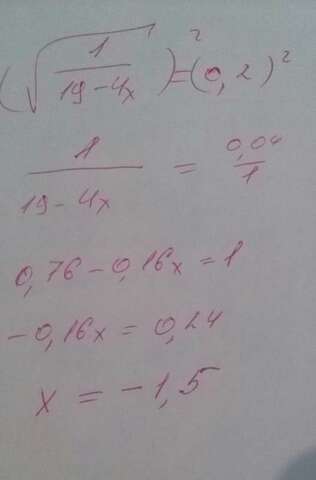 (√(1/(19-4x)))² = (0,2)²
1/(19-4x) = 0,04/1
0,76 - 0,16x = 1
-0,16x = 0,24
x = -1,5